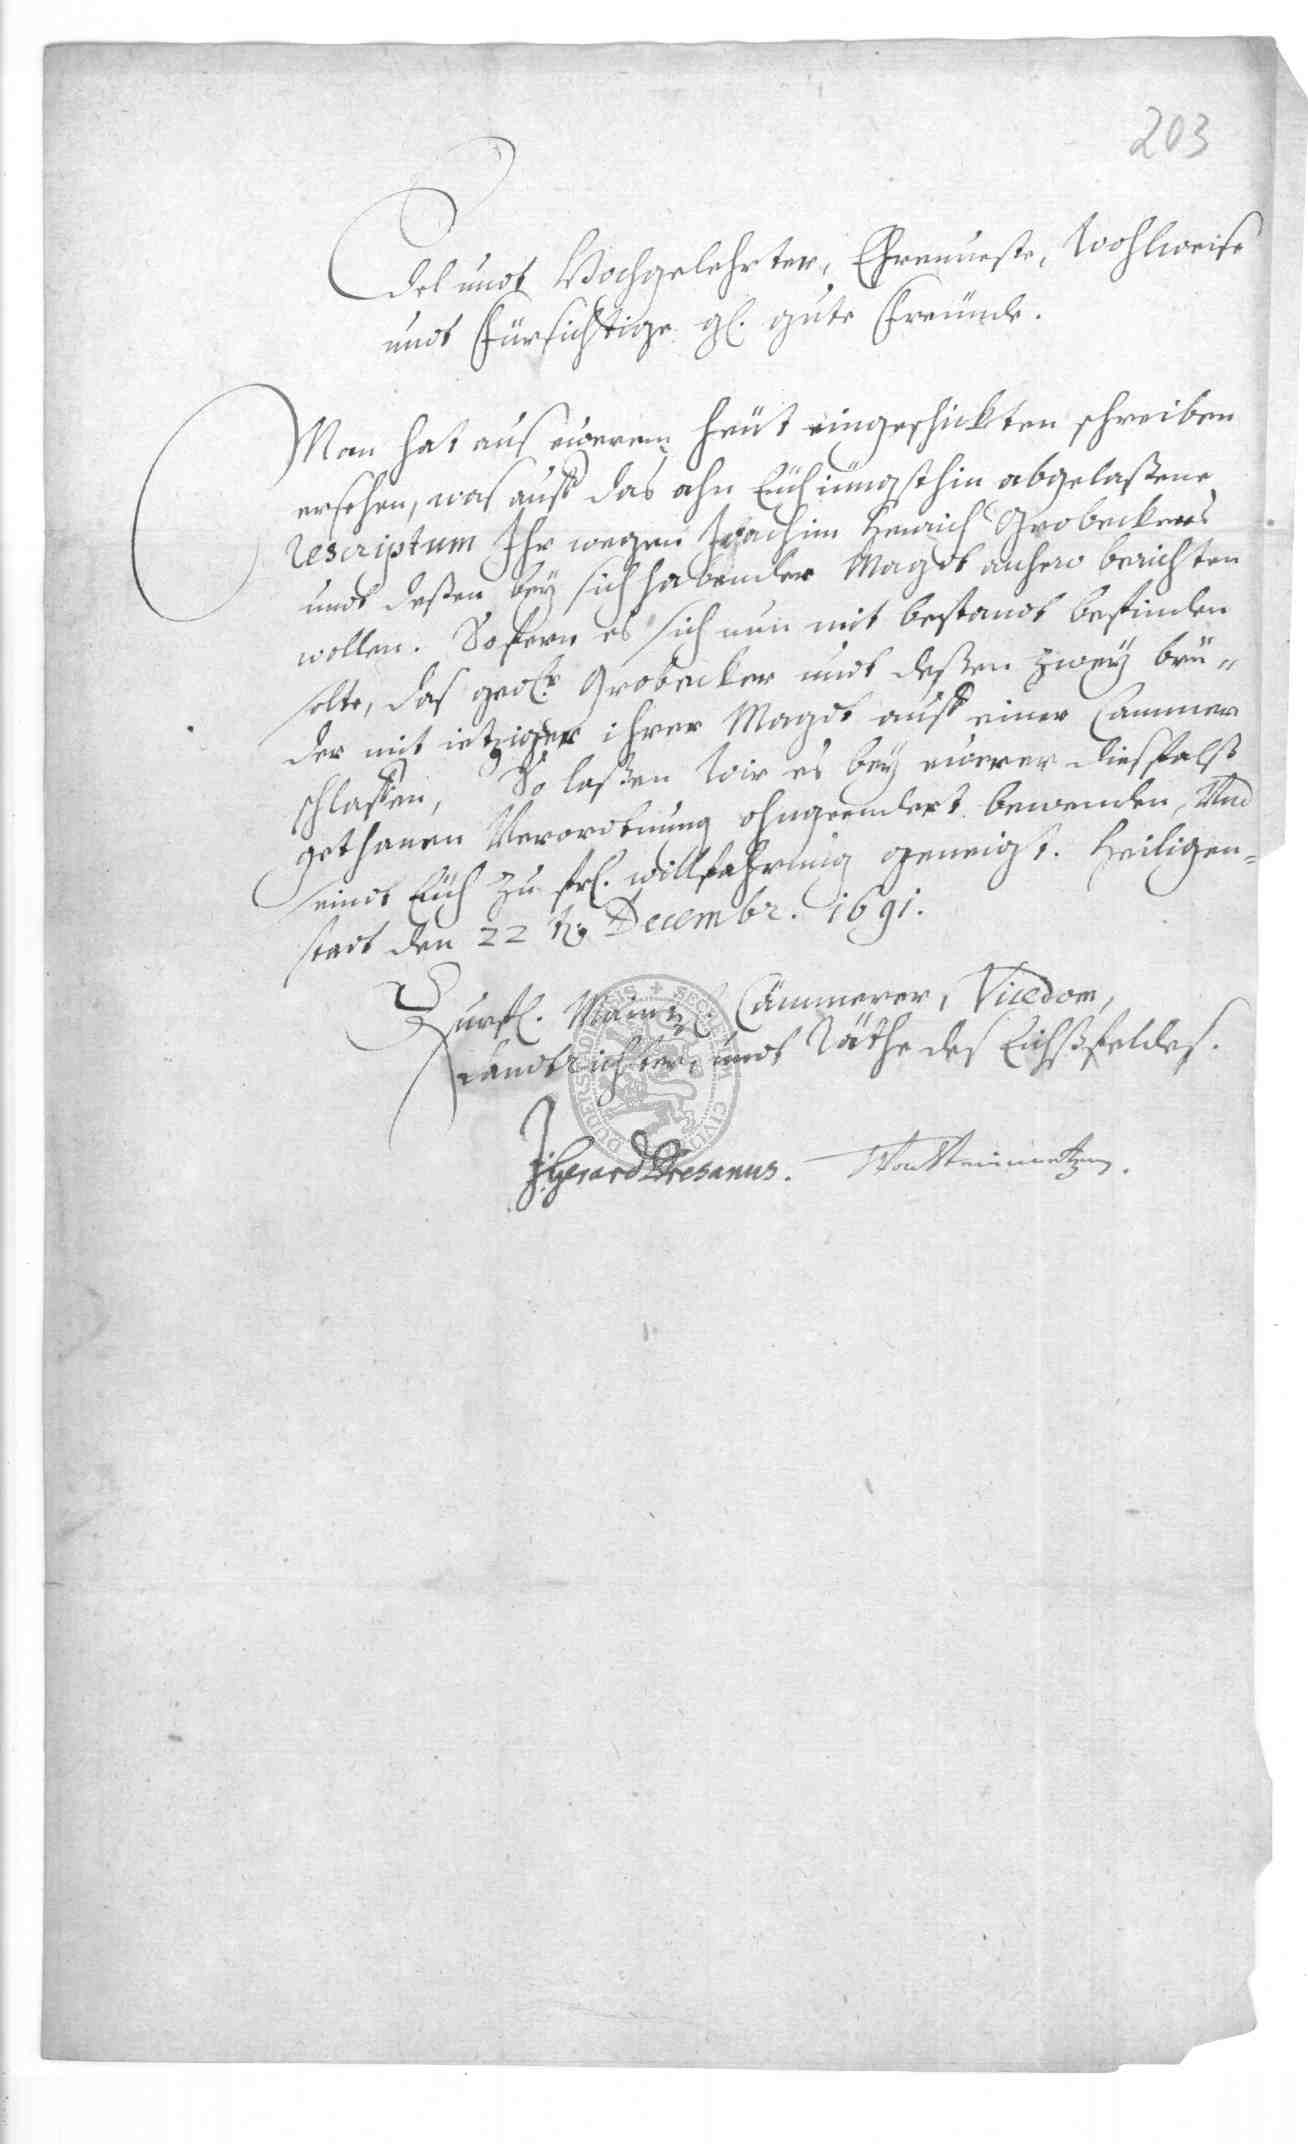 203
Edel undt Hochgelehrter, Ehrnueste, Wohlweise
undt Fürsichtige gl. gute Freünde.
Man hat aus ewerem heüt eingeschickten schreiben
ersehen, was auff das ahn Euch iüngsthin abgelaßene
Rescriptum Ihr wegen Joachim Henrich Grobeckers
undt deßen bey sich habender Magdt anhero berichten
wollen. Sofern es sich nun mit bestandt befinden
solte, das gedr. Grobecker undt deßen zwey brü-
der mit ietziger ihrer Magdt auff einer Cammer
schlaffen, So laßen wir es bey ewerer diesfalß
gethanen Verordnung ohngeendert bewenden, Und
seindt Euch zu frl. willfahrung geneigt. Heiligen-
stadt den 22 Decembr. 1691.
Churfl. Maintzl. Cämmerer, Vicedom,
Landtrichter, undt Räthe des Eichßfeldes.
SECRETUM CIVIT DUDERSTADIENSIS
J. Gerard Dresanus.